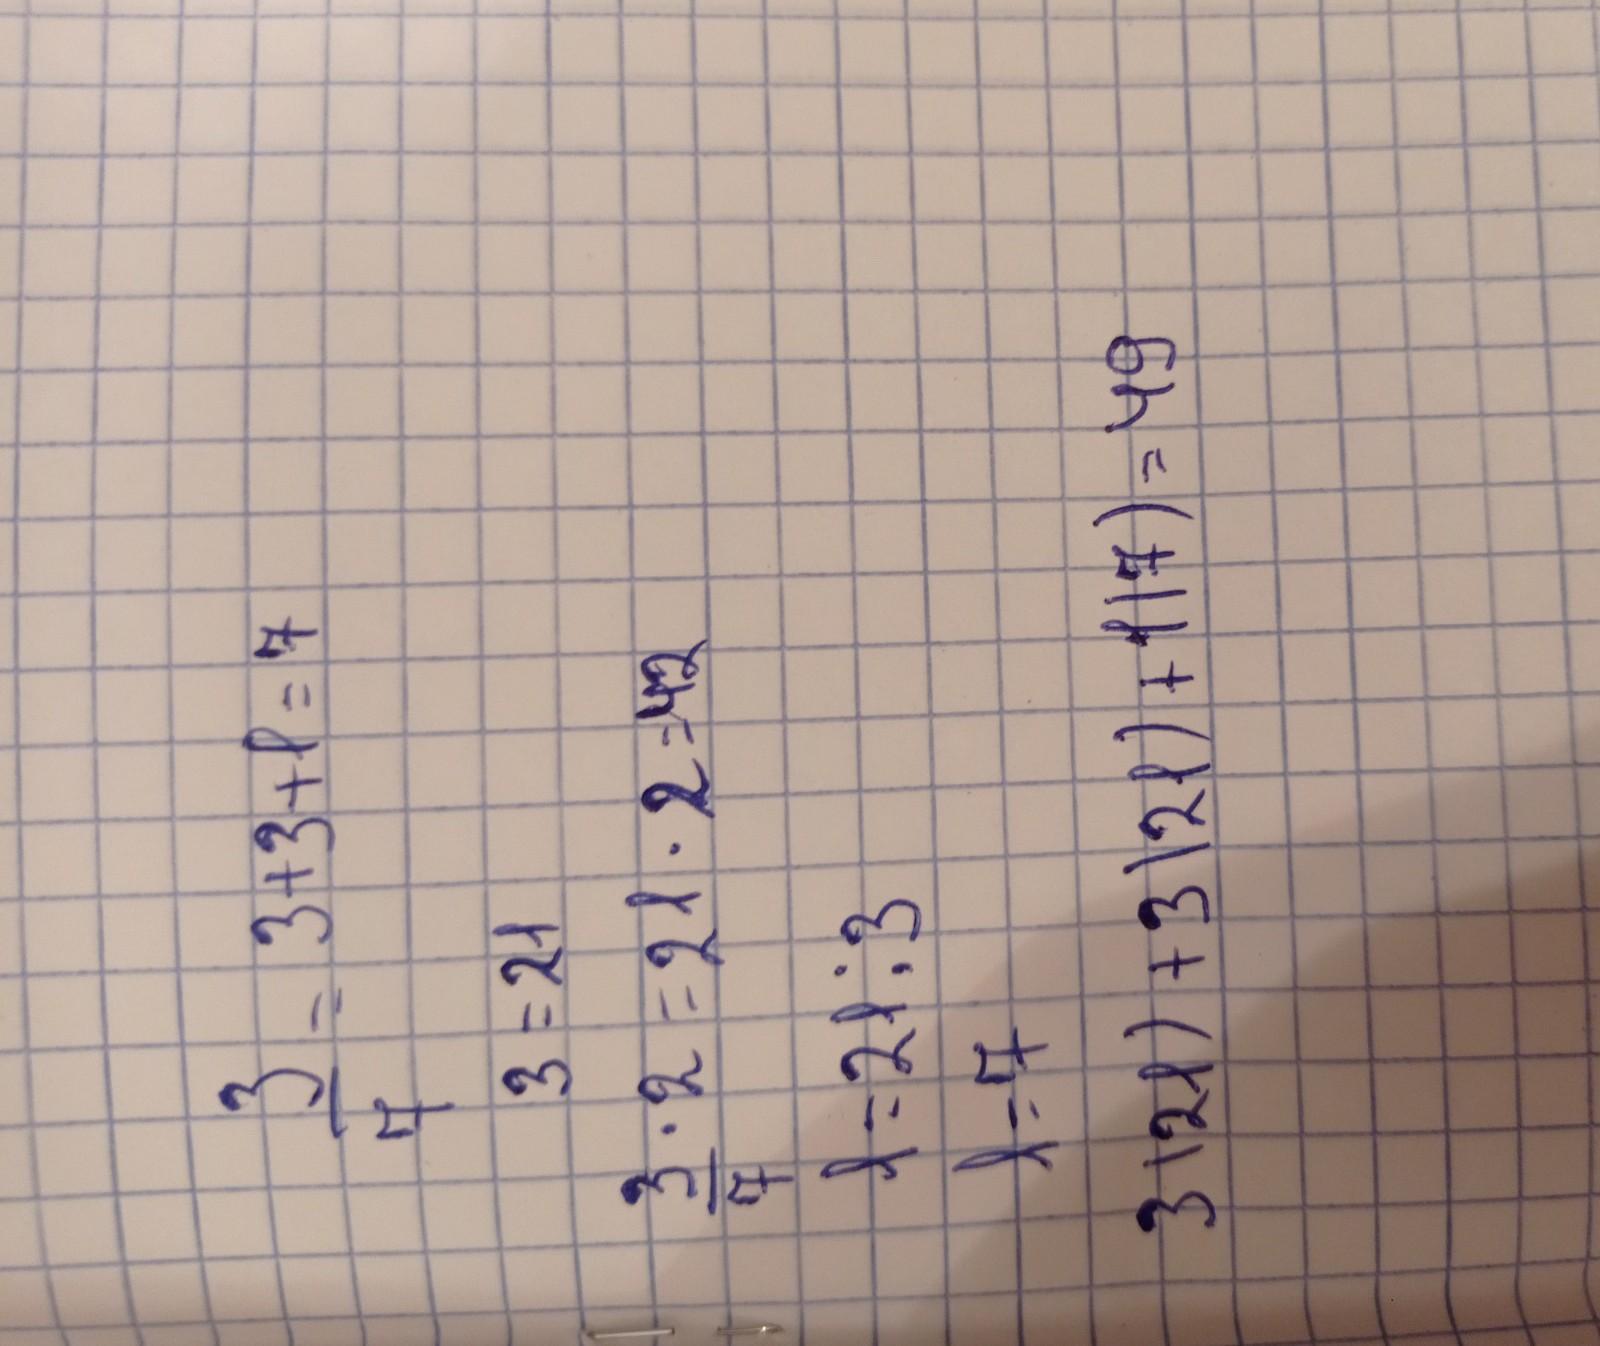 3/7 = 3+3+1=7
3=21
3/7 · 2 = 21 · 2 = 42
1=21:3
1=7
3(21)+3(21)+1(7)=49